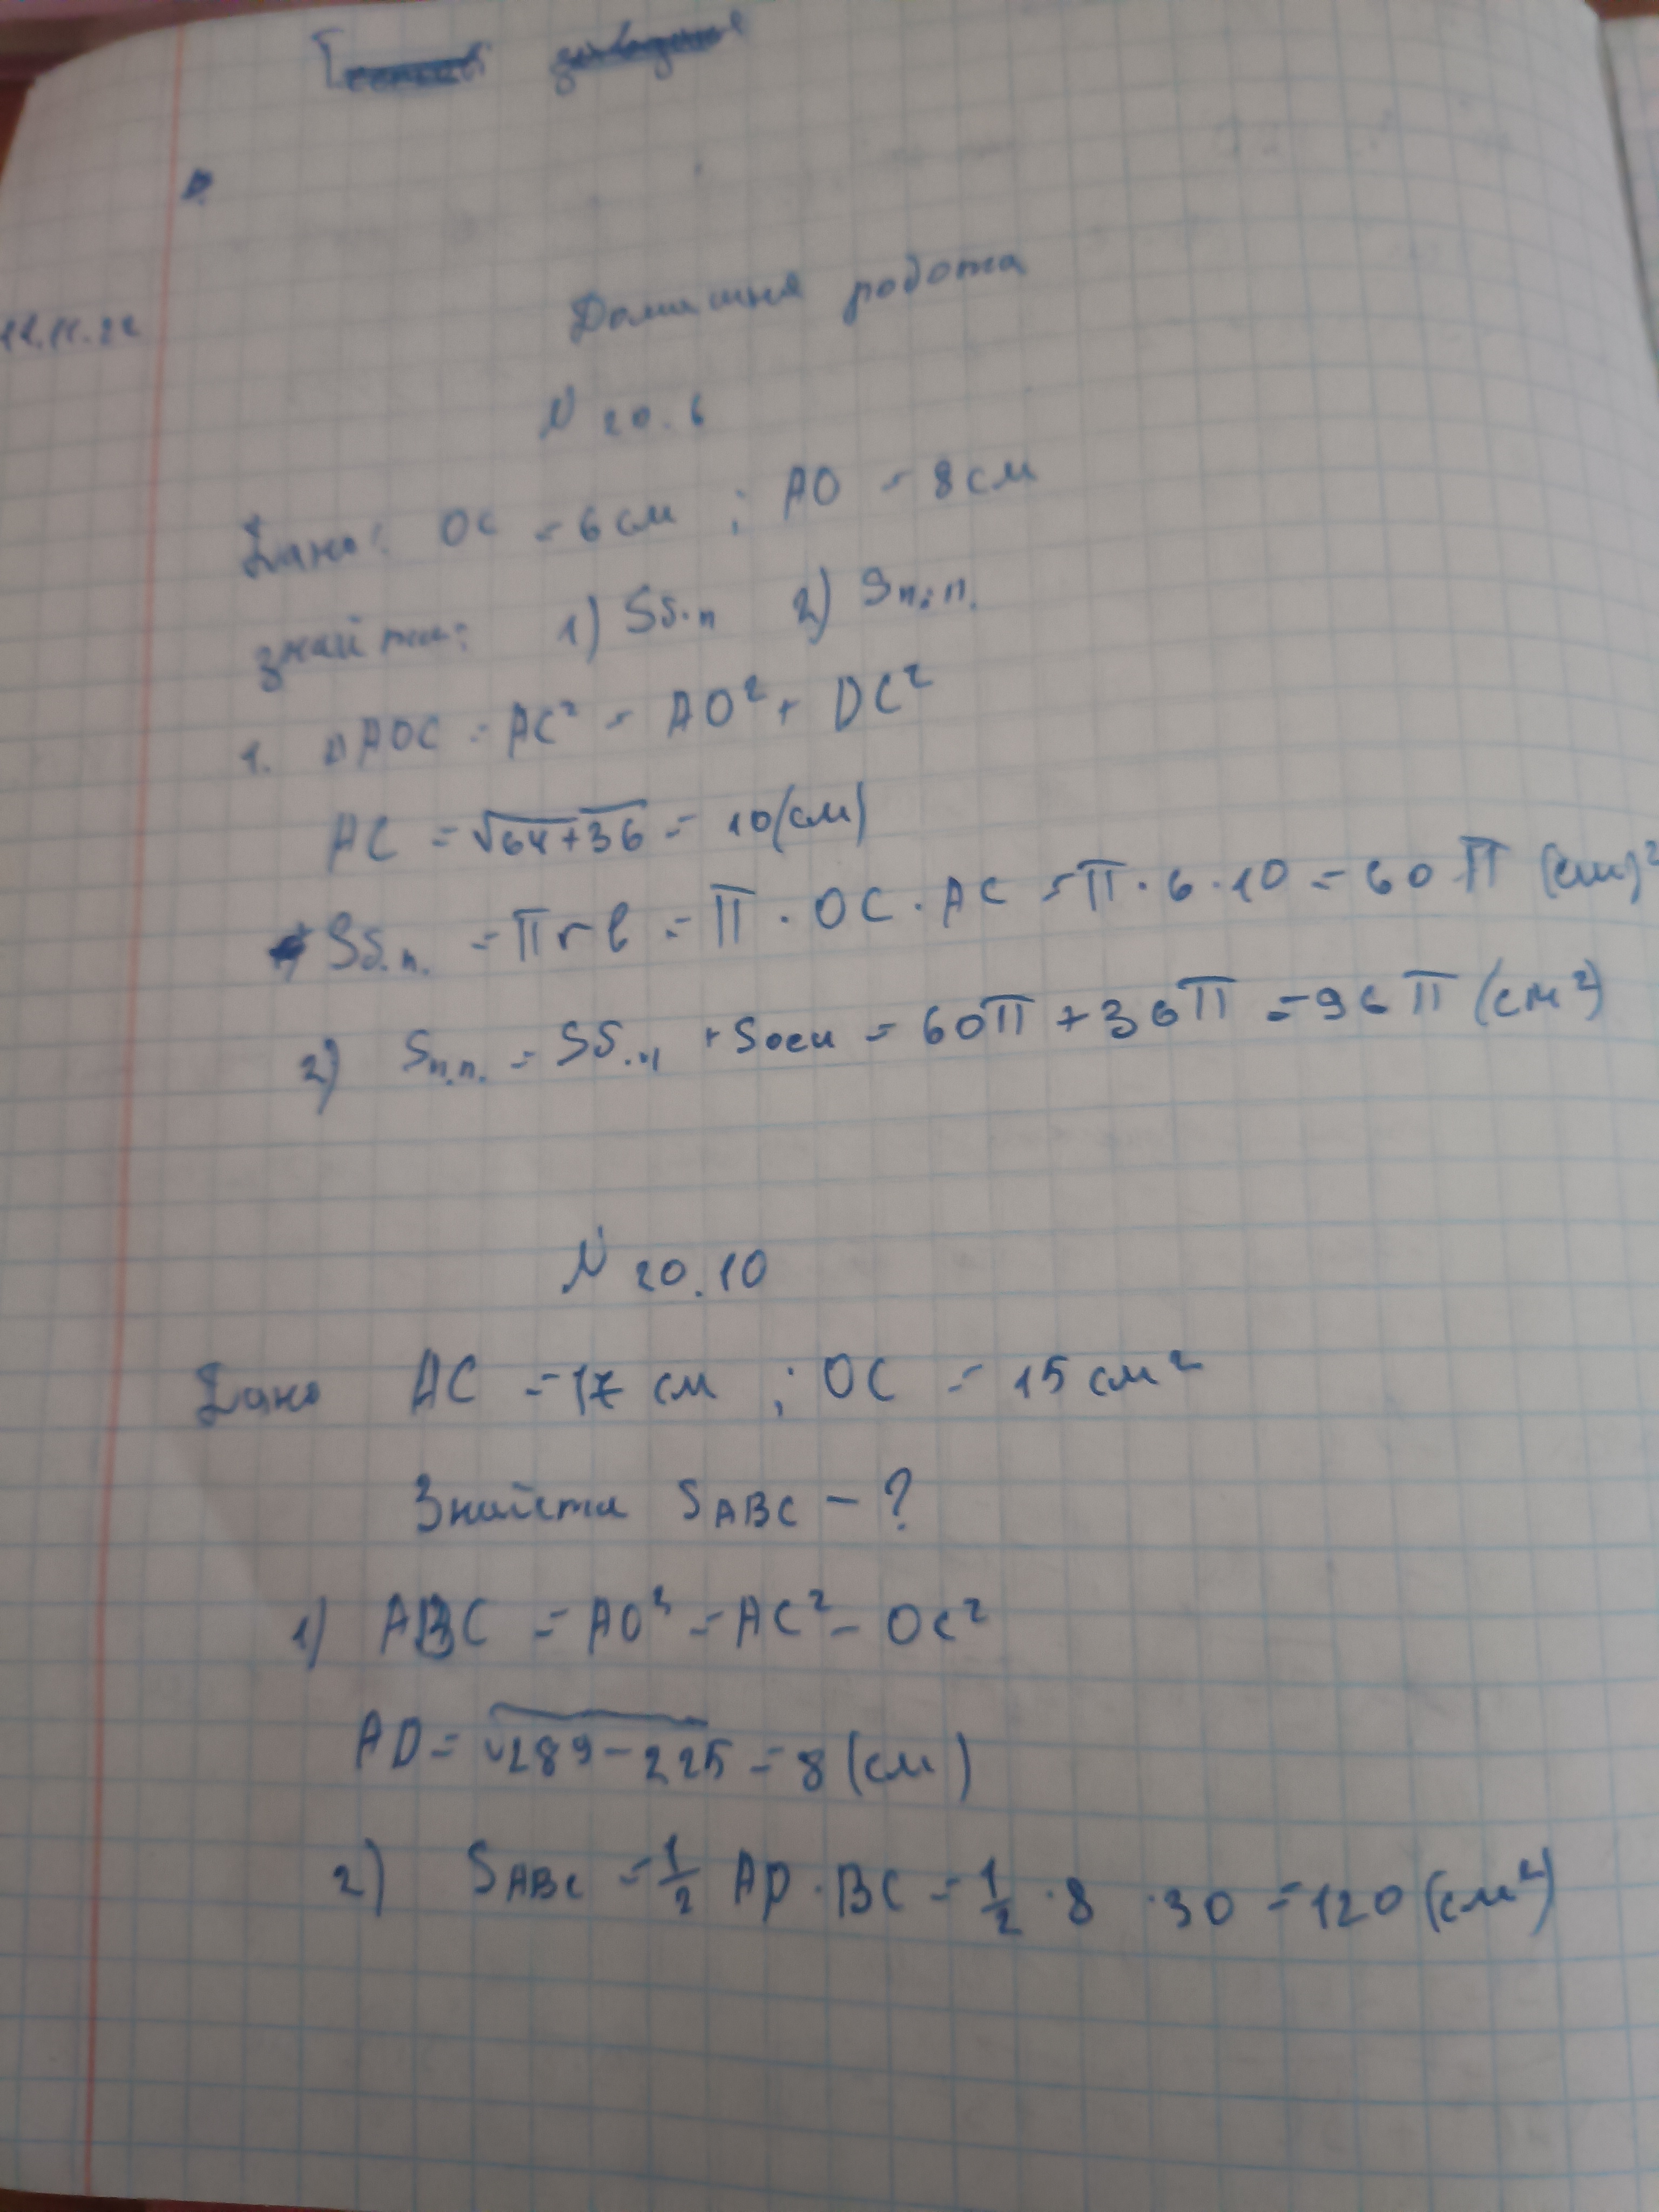 11.11.22
Домашня робота
N 20.6
Дано: OC = 6 см ; AO = 8 см
знайти: 1) Sб.п 2) Sп.п.
1. △AOC = AC² = AO² + OC²
AC = √64+36 = 10 (см)
Sб.п. = πrl = π · OC · AC = π · 6 · 10 = 60 π (см)²
2) Sп.п. = Sб.п + Sосн = 60π + 36π = 96π (см²)
N 20.10
Дано AC = 17 см ; OC = 15 см²
Знайти SABC - ?
1) ABC = AO² = AC² - OC²
AO = √289-225 = 8 (см)
2) SABC = 1/2 AO · BC = 1/2 · 8 · 30 = 120 (см²)